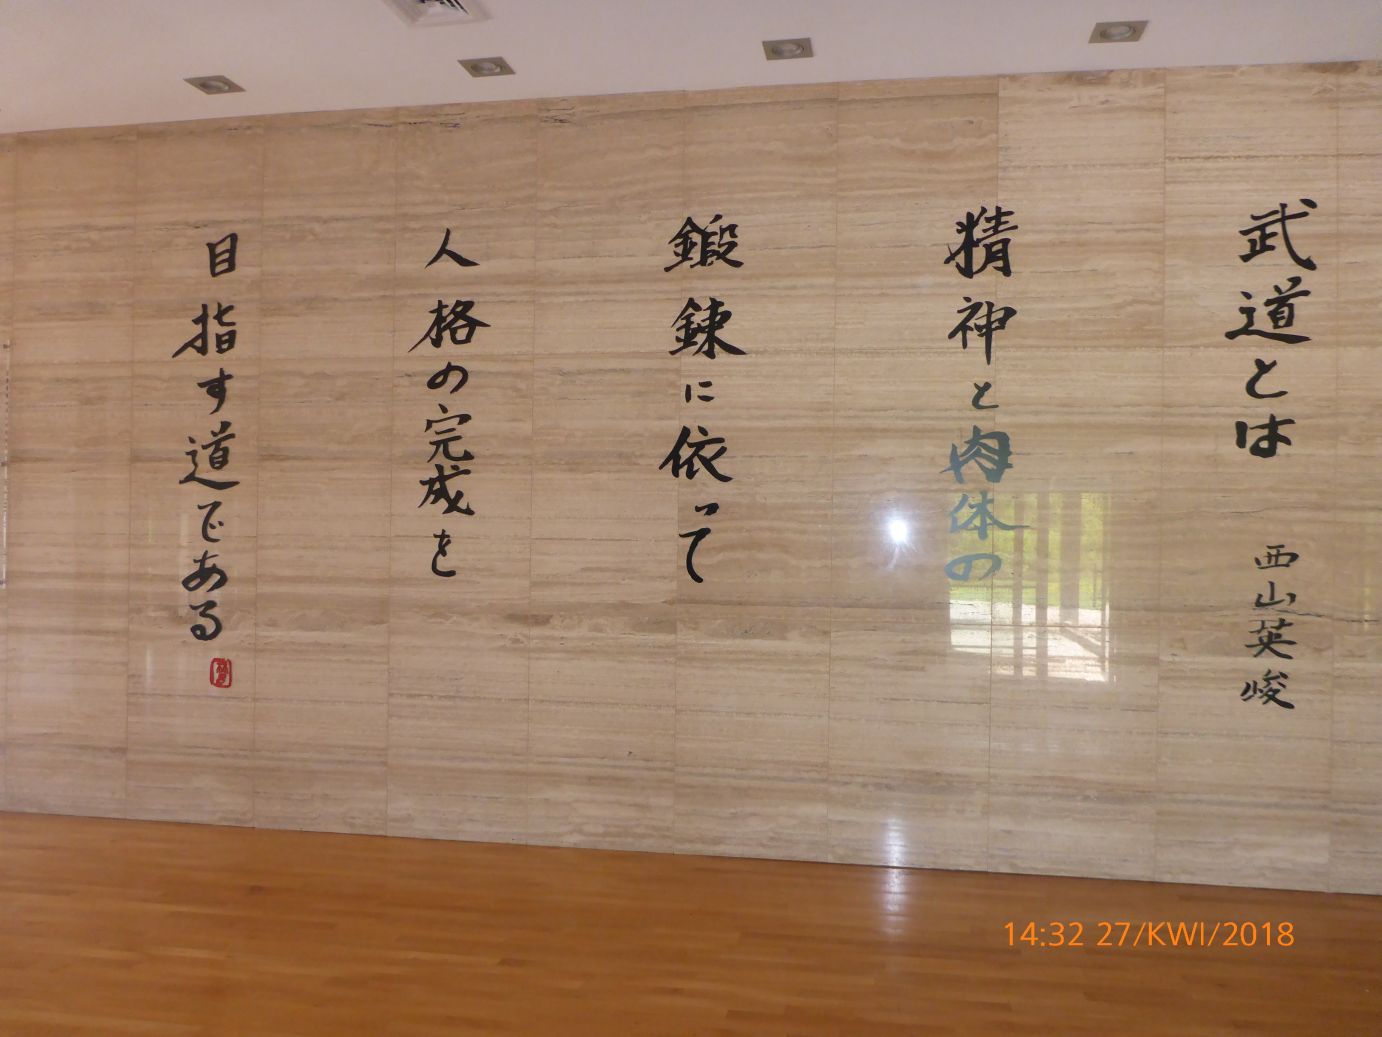 武道とは
西山英峻
精神と肉体の
鍛錬に依って
人格の完成を
目指す道である
14:32 27/KWI/2018